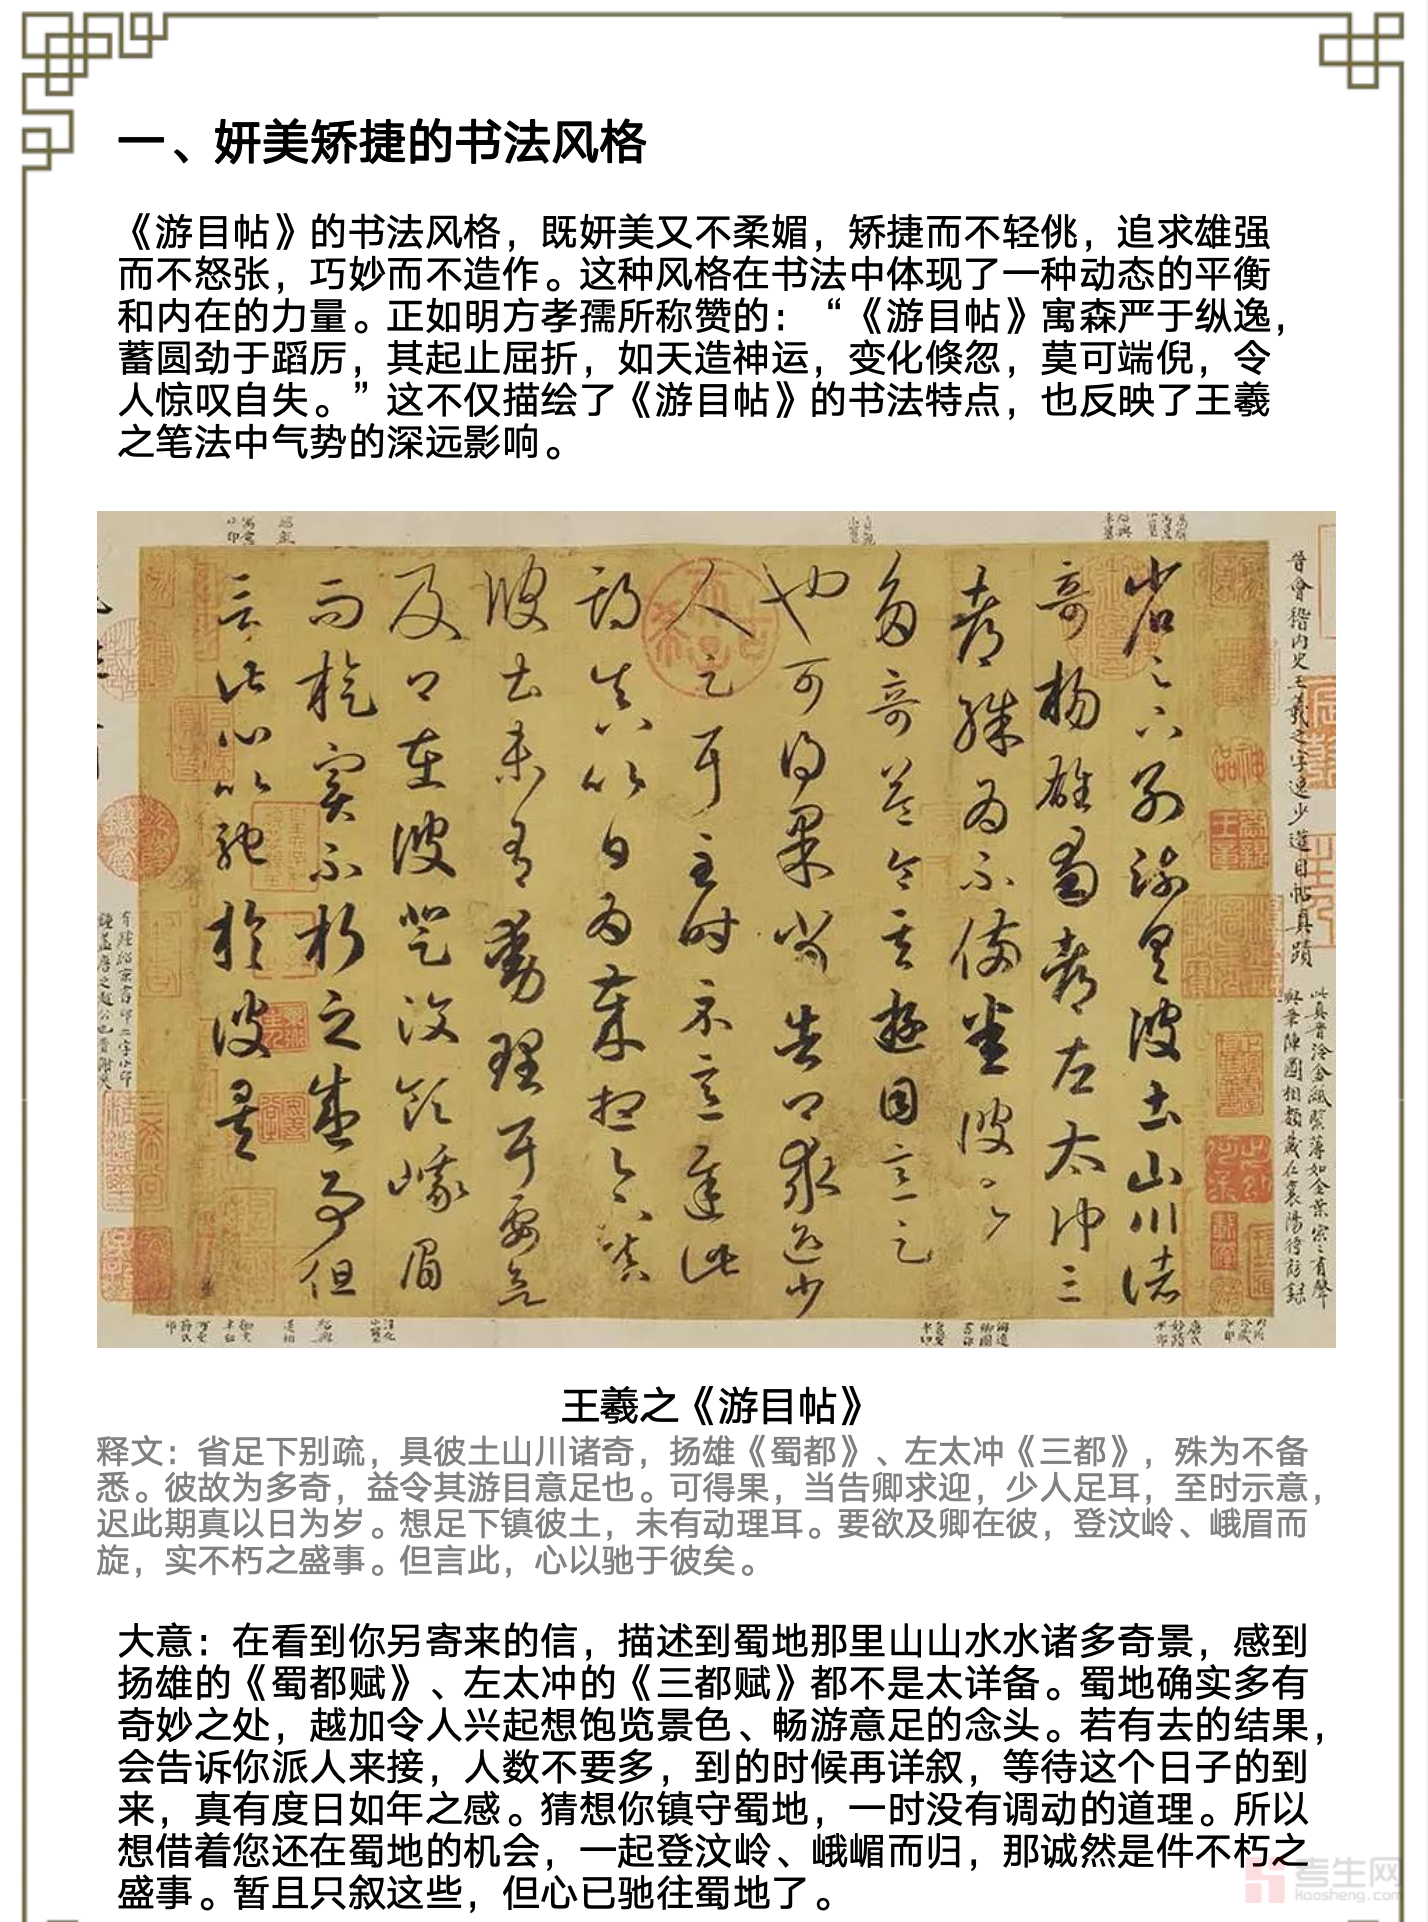 一、妍美矫捷的书法风格
《游目帖》的书法风格，既妍美又不柔媚，矫捷而不轻佻，追求雄强
而不怒张，巧妙而不造作。这种风格在书法中体现了一种动态的平衡
和内在的力量。正如明方孝孺所称赞的：“《游目帖》寓森严于纵逸，
蓄圆劲于蹈厉，其起止屈折，如天造神运，变化倏忽，莫可端倪，令
人惊叹自失。”这不仅描绘了《游目帖》的书法特点，也反映了王羲
之笔法中气势的深远影响。
晉會稽内史王羲之字逸少遊目帖真蹟
省足下别疏具彼土山川諸
奇楊雄蜀都左太冲三
都殊為不備悉彼故
為多奇益令其遊目意足
也可得果當告卿求迎少
人足耳至時示意遲此
期真以日為歲想足下鎮
彼土未有動理耳要欲
及卿在彼登汶領峨眉
而旋實不朽之盛事但
言此心以馳於彼矣
王羲之《游目帖》
释文：省足下别疏，具彼土山川诸奇，扬雄《蜀都》、左太冲《三都》，殊为不备
悉。彼故为多奇，益令其游目意足也。可得果，当告卿求迎，少人足耳，至时示意，
迟此期真以日为岁。想足下镇彼土，未有动理耳。要欲及卿在彼，登汶岭、峨眉而
旋，实不朽之盛事。但言此，心以驰于彼矣。
大意：在看到你另寄来的信，描述到蜀地那里山山水水诸多奇景，感到
扬雄的《蜀都赋》、左太冲的《三都赋》都不是太详备。蜀地确实多有
奇妙之处，越加令人兴起想饱览景色、畅游意足的念头。若有去的结果，
会告诉你派人来接，人数不要多，到的时候再详叙，等待这个日子的到
来，真有度日如年之感。猜想你镇守蜀地，一时没有调动的道理。所以
想借着您还在蜀地的机会，一起登汶岭、峨嵋而归，那诚然是件不朽之
盛事。暂且只叙这些，但心已驰往蜀地了。
考生网
kaosheng.com